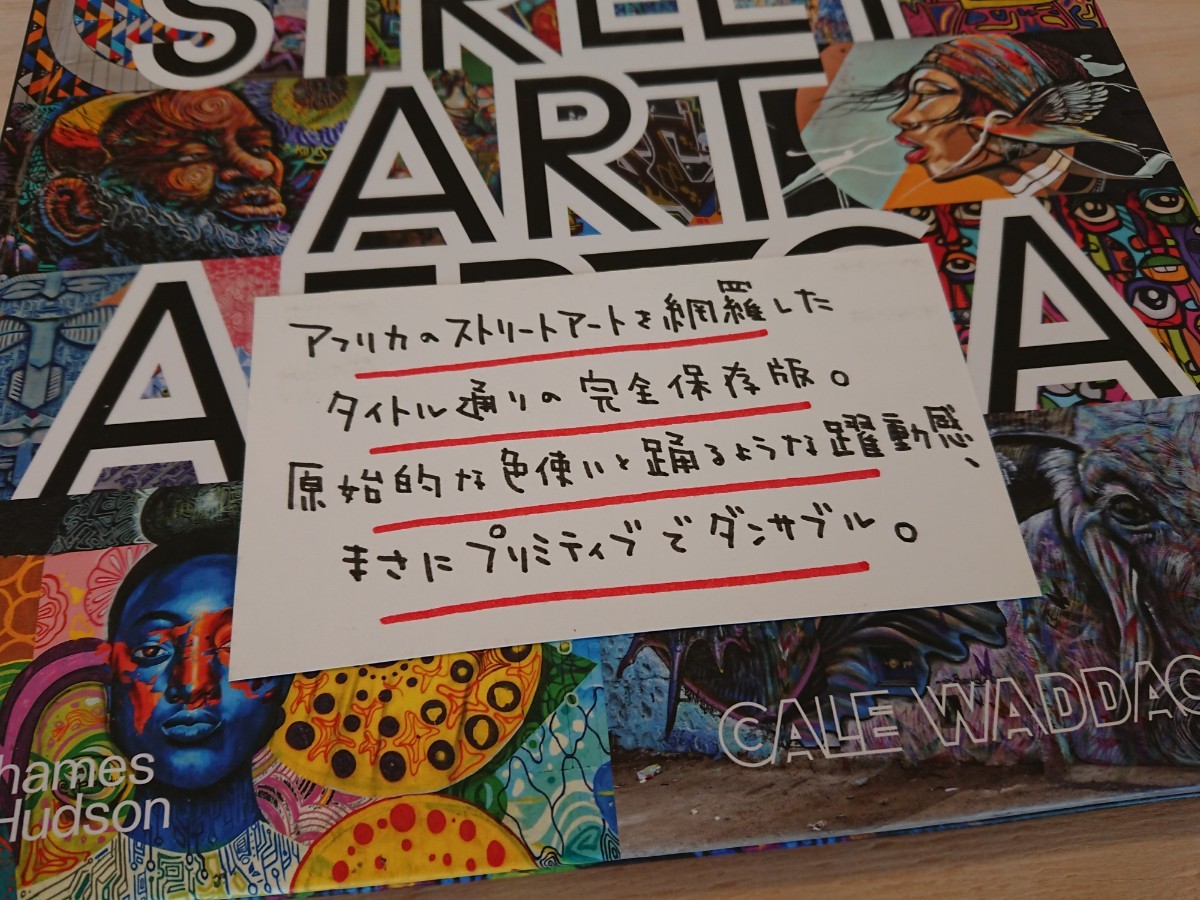 STREET
ART
AFRICA
アフリカのストリートアートを網羅した
タイトル通りの完全保存版。
原始的な色使いと踊るような躍動感、
まさにプリミティブでダンサブル。
CALE WADDAC
hames
Hudson